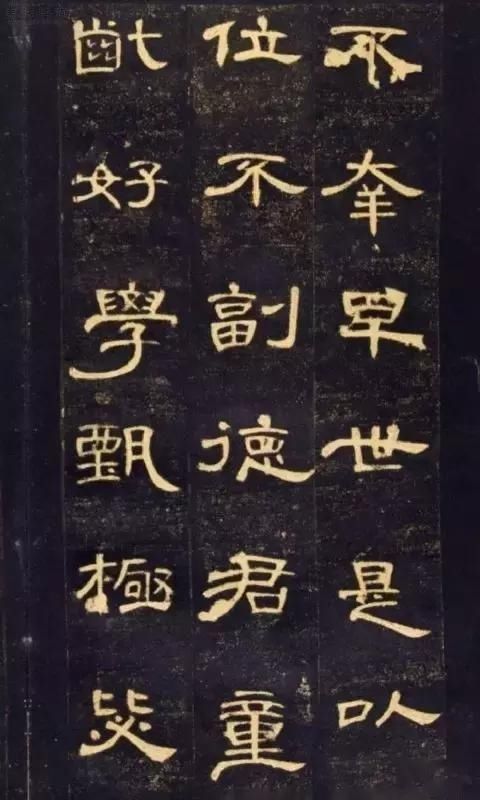 不幸早世是以
位不副德君童
齔好學甄極毖